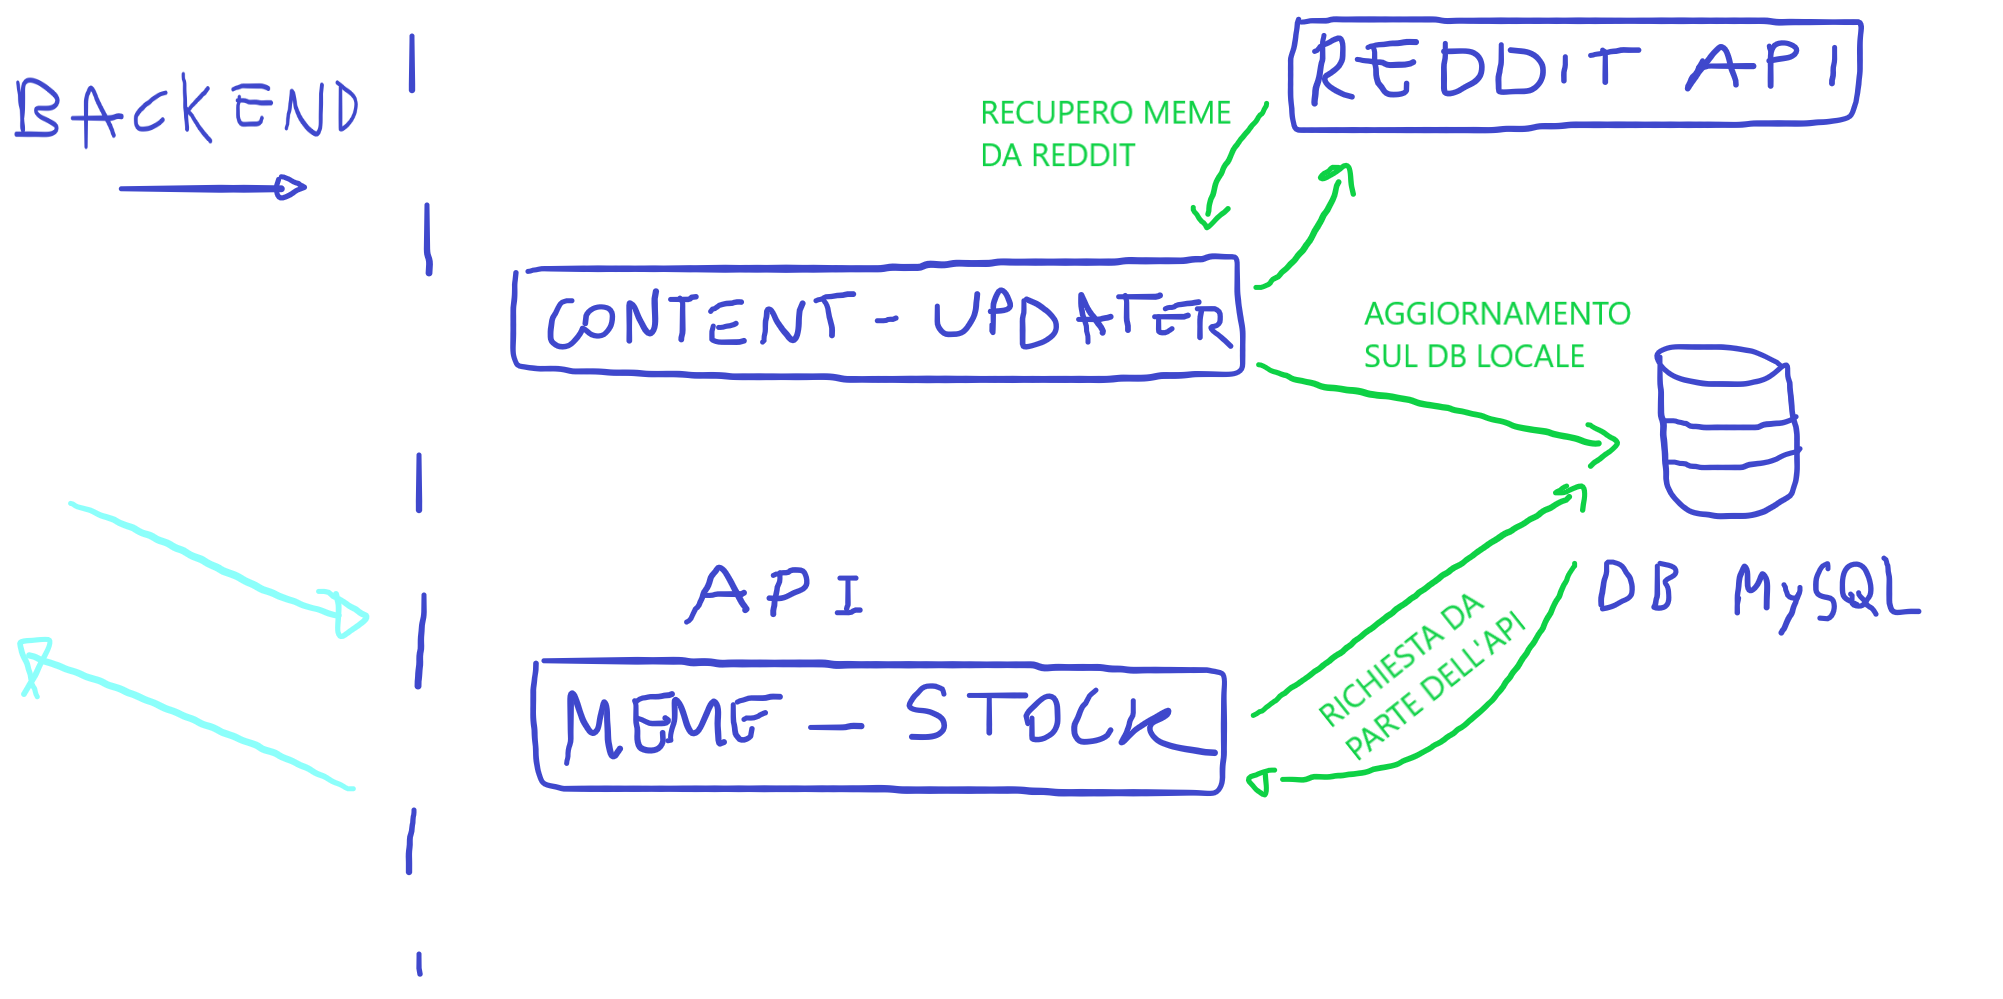 BACKEND
REDDIT API
RECUPERO MEME
DA REDDIT
CONTENT - UPDATER
AGGIORNAMENTO
SUL DB LOCALE
DB MySQL
API
MEME - STOCK
RICHIESTA DA
PARTE DELL'API